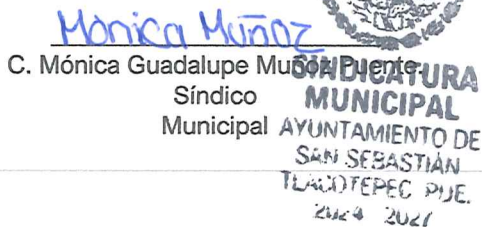 Mónica Muñoz
C. Mónica Guadalupe Muñoz Puente.
Síndico
Municipal
SINDICATURA
MUNICIPAL
AYUNTAMIENTO DE
SAN SEBASTIÁN
TLACOTEPEC PUE.
2024 2027